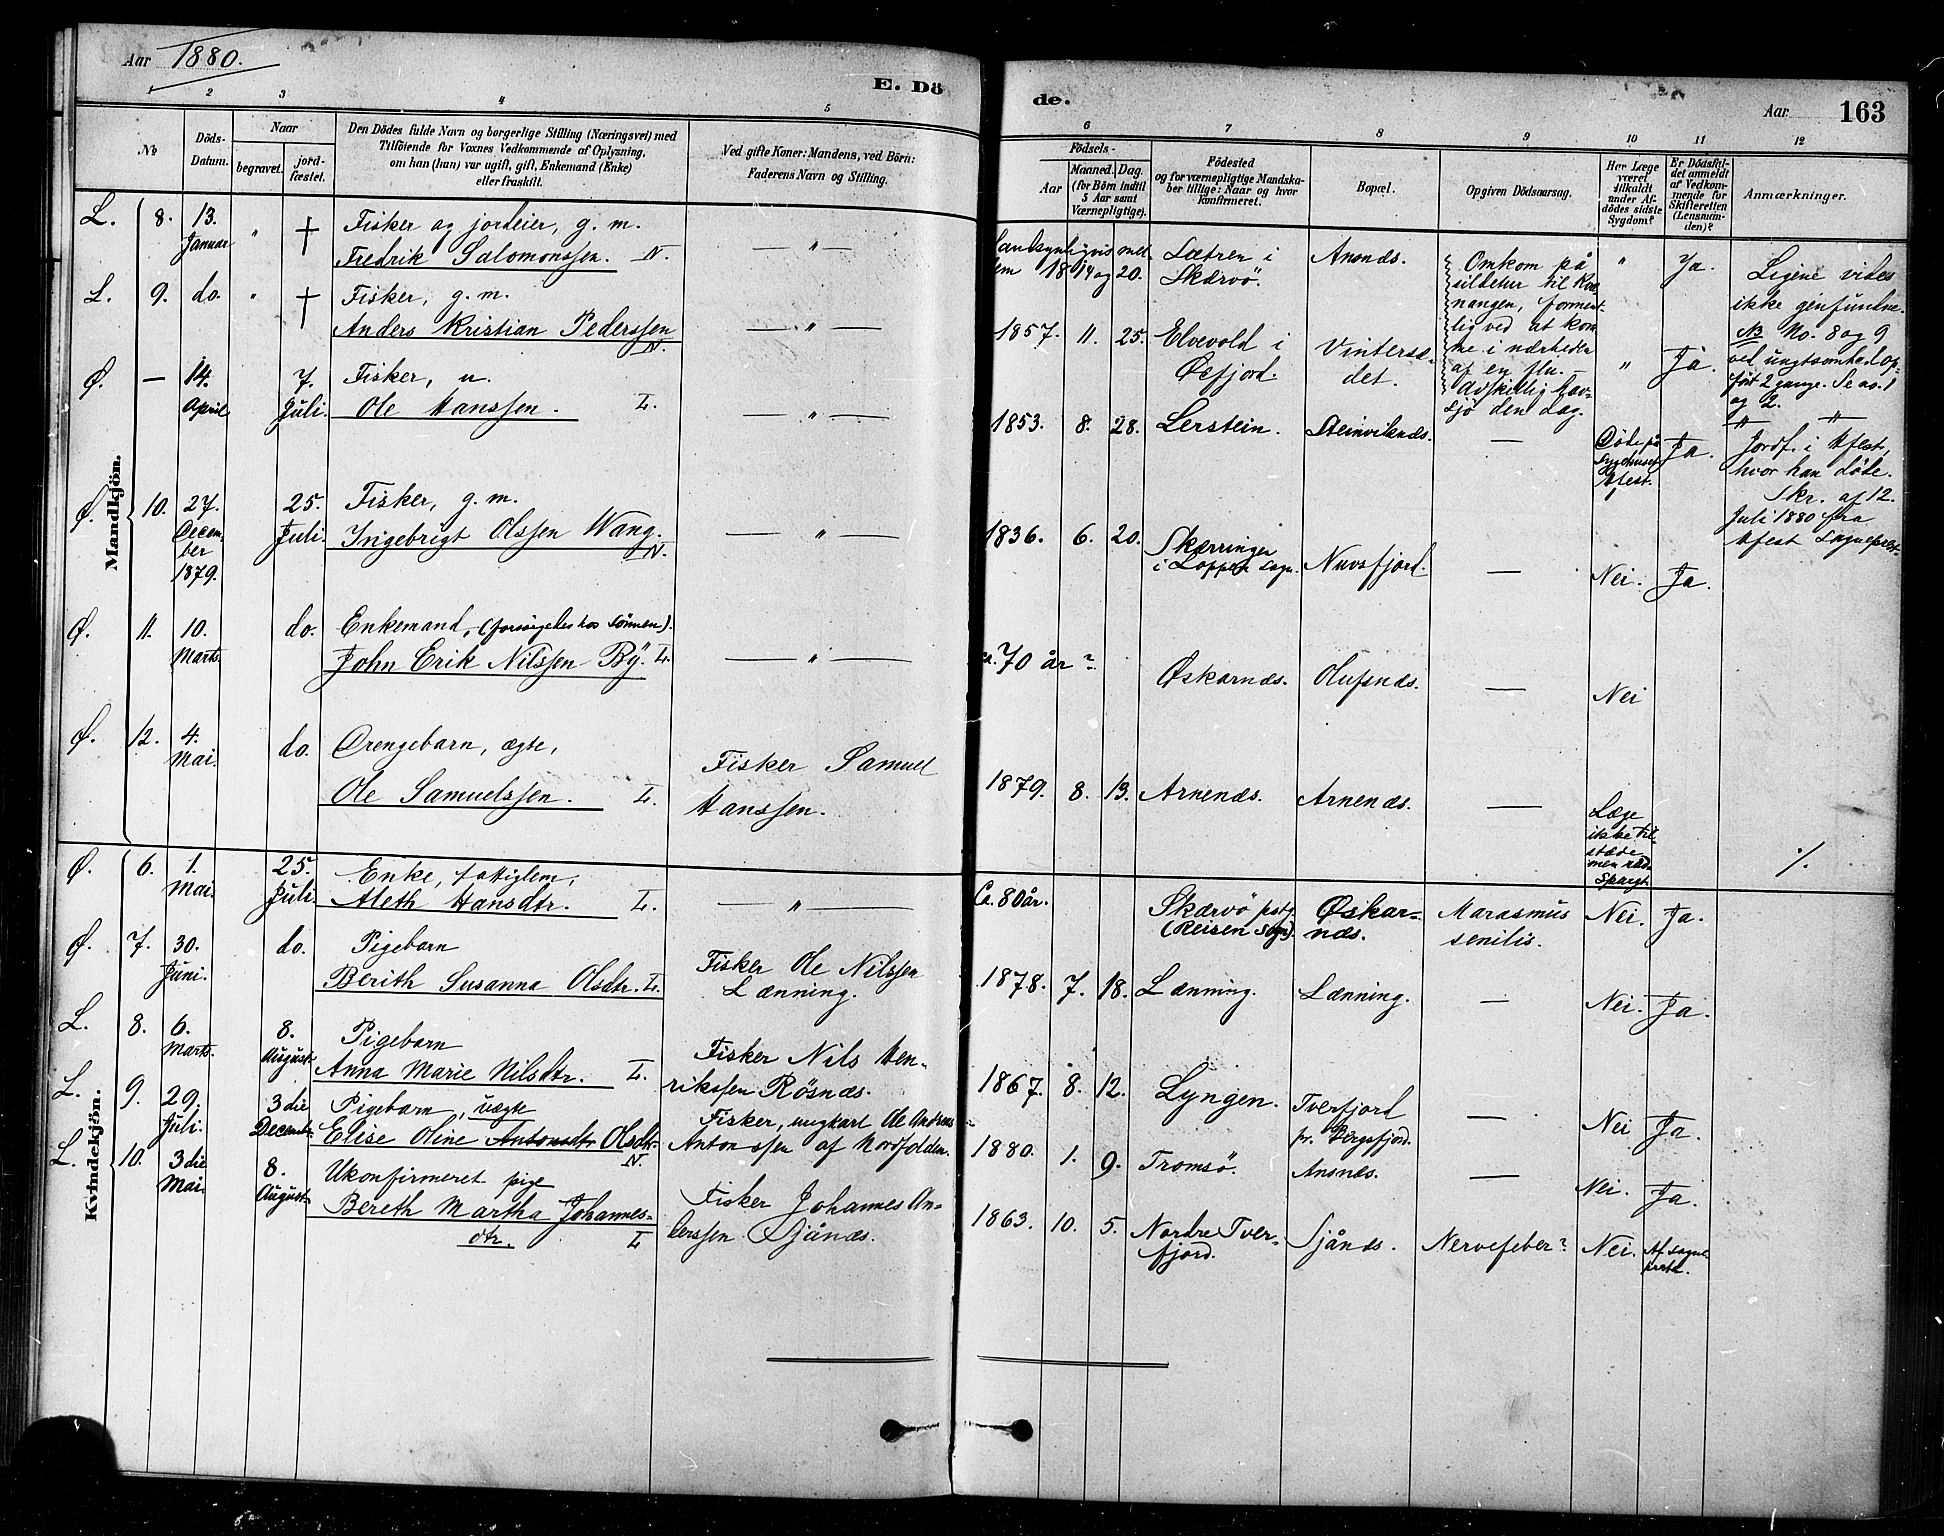 Aar 1880.
E. Dö
de.
Aar 163
2 3 4 5 6 7 8 9 10 11 12
No
Döds-Datum.
Naar
begravet.
jord-fæstet.
Den Dödes fulde Navn og borgerlige Stilling (Næringsvei) med
Tilföiende for Voxnes Vedkommende af Oplysning,
om han (hun) var ugift, gift, Enkemand (Enke)
eller fraskilt.
Ved gifte Koner: Mandens, ved Börn:
Faderens Navn og Stilling.
Födsels-
Aar
Maaned. Dag.
(for Börn indtil
5 Aar samt
Værnepligtige).
Födested
og for værnepligtige Mandska-
ber tillige: Naar og hvor
konfirmeret.
Bopæl.
Opgiven Dödsaarsag.
Har Læge
været
tilkaldt
under Af-
dödes sidste
Sygdom?
Er Dödsfal-
det anmeldt
af Vedkom-
mende for
Skifteretten
(Lensman-
den)?
Anmærkninger.
Mandkjön.
L. 8. 13. Januar " † Fisker og jordeier, g. m.
Fredrik Salomonssen. N. — " —
Sandsynligvis mel-
lem 1819 og 20. Lætren i
Skærvö. Ansnæs. Omkom på
sildetur til Kve-
nangen, forment-
lig ved at kom-
me i nærheden
af en flu. —
Avskellig hav-
sjö den dag. " Ja. Ligene vides
ikke genfundne.
NB No. 8 og 9
ved uagtsomhed op-
fört 2 gange. Se no. 1
og 2.
L. 9. do. " † Fisker, g. m.
Anders Kristian Pederssen N. — " —
1857. 11. 25. Elvevold i
Öxfjord. Vintersæ-
det. " Ja.
Ø. — 14. April 7. Juli. Fisker, u.
Ole Hanssen. L. — " —
1853. 8. 28. Lerstein. Steinviknæs. — Döde på
sygehuset
Hfest. Ja. " "
Jordf. i Hfest,
hvor han döde.
Skr. af 12.
Juli 1880 fra
Hfest Sogneprest.
Ø. 10. 27. Decem-
ber
1879. 25. Juli. Fisker, g. m.
Ingebrigt Olssen Wang. N. — " —
1836. 6. 20. Skærringen
i Loppen sogn. Nuvsfjord. — Nei. Ja.
Ø. 11. 10. Marts. do. Enkemand, (forsörgedes hos sönnen).
John Erik Nilssen Bÿ. L. — " —
ca. 70 år? Øskarnæs. Olufsnæs. — Nei
Ø. 12. 4. Mai. do. Drengebarn, ægte,
Ole Samuelssen. L. Fisker Samuel
Hanssen.
1879. 8. 13. Arnenæs. Arnenæs. — Læge
ikke til-
stæde
men råd-
spurgt. %
Kvindekjön.
Ø. 6. 1. Mai. 25. Juli. Enke, fattiglem,
Aleth Hansdtr. L. — " —
Ca. 80 år. Skærvö pstg.
(Reisen sogn). Øskar-
næs. Marasmus
senilis. Nei. Ja.
Ø. 7. 30. Juni. do. Pigebarn
Berith Susanna Olsdtr. L. Fisker Ole Nilssen
Lænning.
1878. 7. 18. Lænning. Lænning. — Nei. Ja.
L. 8. 6. Marts. 8. August Pigebarn
Anna Marie Nilsdtr. L. Fisker Nils Hen-
rikssen Rösnæs.
1867. 8. 12. Lyngen. Tverfjord
pr. Bergsfjord. — Nei Ja.
L. 9. 29. Juli. 3die Decemb. Pigebarn, uægte
Elise Oline Antonsdtr Olsdtr. N. Fisker, ungkarl Ole Andreas
Antonssen af Nordfolden.
1880. 1. 9. Tromsö. Ansnæs. — Nei. Ja.
L. 10. 3die Mai. 8. August Ukonfirmeret pige
Bereth Martha Johannes-
dtr. L Fisker Johannes An-
derssen Sjånæs.
1863. 10. 5. Nordre Tver-
fjord. Sjånæs. Nervefeber? Nei. Af sogne-
prest.